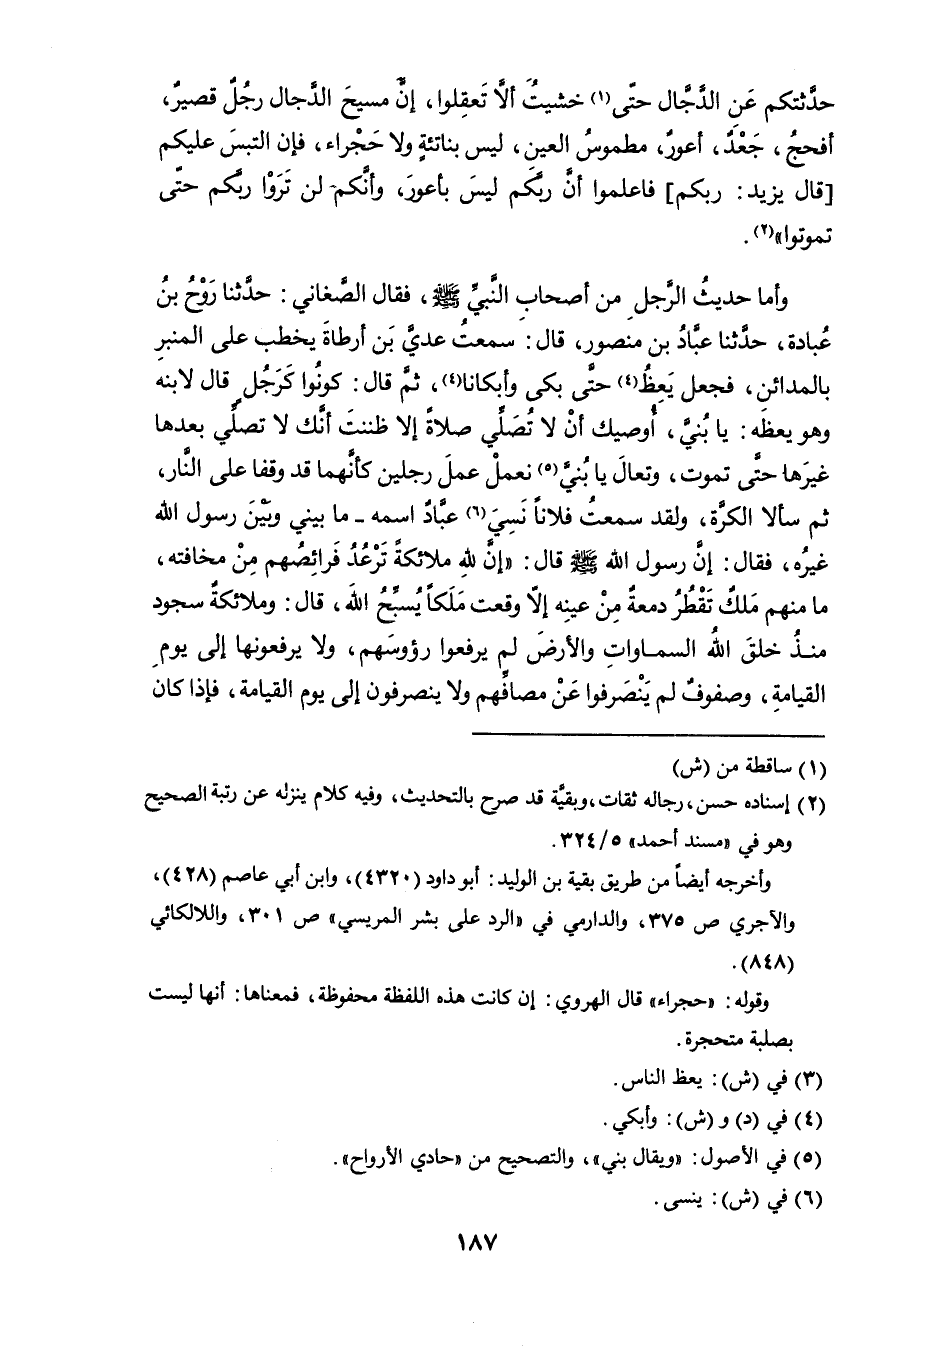 حدَّثتكم عَنِ الدَّجَّال حتَّى(١) خشيتُ ألَّا تَعقِلوا، إنَّ مسيحَ الدَّجال رجُلٌ قصيرٌ،
أفحجُ، جَعْدٌ، أعورُ، مطموسُ العين، ليس بناتئةٍ ولا حَجْراء، فإن التبسَ عليكم
[قال يزيد: ربكم] فاعلموا أنَّ ربَّكم ليسَ بأعورَ، وأنَّكم لن تَرَوْا ربَّكم حتَّى
تموتوا»(٢).
وأما حديثُ الرَّجلِ من أصحابِ النَّبيِّ ﷺ، فقال الصَّغاني: حدَّثنا رَوْحُ بنُ
عُبادة، حدَّثنا عبَّادُ بن منصور، قال: سمعتُ عديَّ بَن أرطاةَ يخطب على المنبرِ
بالمدائن، فجعل يَعِظُ(٤) حتَّى بكى وأبكانا(٤)، ثمَّ قال: كونُوا كَرَجُلٍ قال لابنه
وهو يعظَه: يا بُنيَّ، أُوصيك أنْ لا تُصَلِّي صلاةً إلا ظننتَ أنَّك لا تصلِّي بعدها
غيرَها حتَّى تموت، وتعالَ يا بُنيَّ(٥) نعملْ عملَ رجلين كأنَّهما قد وقفا على النَّار،
ثم سألا الكرَّة، ولقد سمعتُ فلاناً نَسِيَ(٦) عبَّادٌ اسمه ـ ما بيني وبَيْنَ رسول الله
غيرُه، فقال: إنَّ رسول الله ﷺ قال: «إنَّ للهِ ملائكةً تَرْعُدُ فَرائِصُهم مِنْ مخافته،
ما منهم مَلكٌ تَقْطُرُ دمعةٌ مِنْ عينِه إلاّ وقعت مَلَكاً يُسبِّحُ اللهَ، قال: وملائكةٌ سجود
منذُ خلقَ اللهُ السماواتِ والأرضَ لم يرفعوا رؤوسَهم، ولا يرفعونها إلى يومِ
القيامةِ، وصفوفٌ لم يَنْصَرفوا عَنْ مصافِّهم ولا ينصرفون إلى يوم القيامة، فإذا كان
(١) ساقطة من (ش)
(٢) إسناده حسن، رجاله ثقات، وبقيَّة قد صرح بالتحديث، وفيه كلام ينزله عن رتبة الصحيح
وهو في «مسند أحمد» ٣٢٤/٥.
وأخرجه أيضاً من طريق بقية بن الوليد: أبو داود (٤٣٢٠)، وابن أبي عاصم (٤٢٨)،
والآجري ص ٣٧٥، والدارمي في «الرد على بشر المريسي» ص ٣٠١، واللالكائي
(٨٤٨).
وقوله: «حجراء» قال الهروي: إن كانت هذه اللفظة محفوظة، فمعناها: أنها ليست
بصلبة متحجرة.
(٣) في (ش): يعظ الناس.
(٤) في (د) و (ش): وأبكي.
(٥) في الأصول: «ويقال بني»، والتصحيح من «حادي الأرواح».
(٦) في (ش): ينسى.
١٨٧